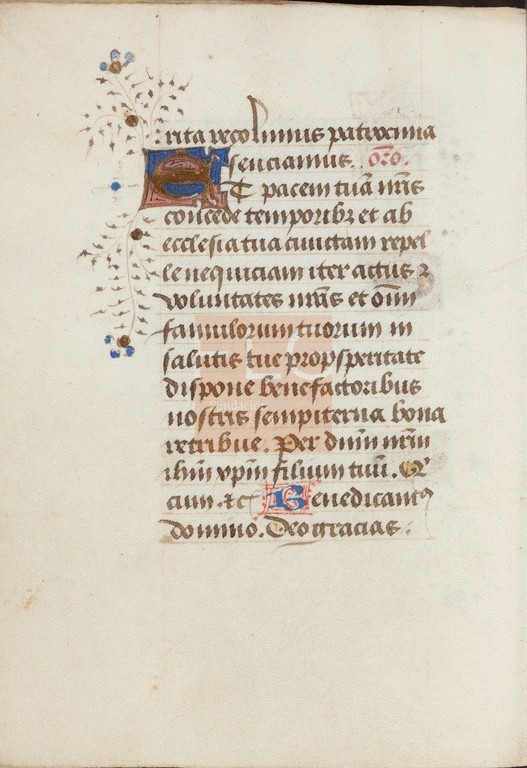 rita recolimus patrocinia
senciamus. oro.
Et pacem tuã nris
concede temporibz et ab
ecclesia tua cunctam repel
le nequiciam iter actus z
voluntates nras et oim
famulorum tuorum in
salutis tue propsperitate
dispone benefactoribus
nostris sempiterna bona
retribue. Per dnm nrm
ihm xpm filium tuu. Et
cium. &c Benedicamus
domino. Deo gracias.